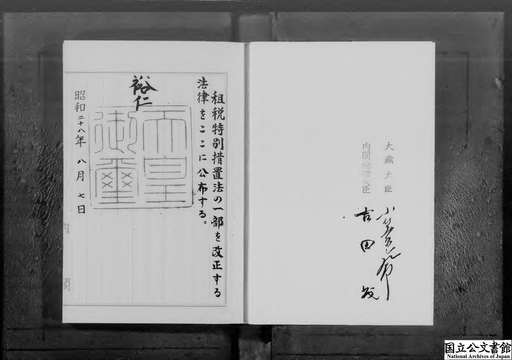 租税特別措置法の一部を改正する
法律をここに公布する。
裕仁
天皇
御璽
昭和二十八年 八月 七日
内閣
大蔵大臣
小笠原三九郎
内閣総理大臣
吉田茂
国立公文書館
National Archives of Japan